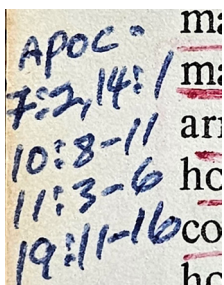 APOC.
7:2, 14:1
10:8-11
11:3-6
19:11-16
ma
ma
arr
hc
co
hc